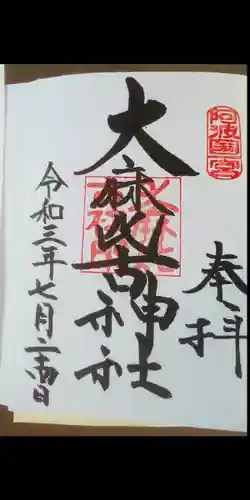 阿波國一宮
奉拝
大麻比古神社
令和三年七月二十四日